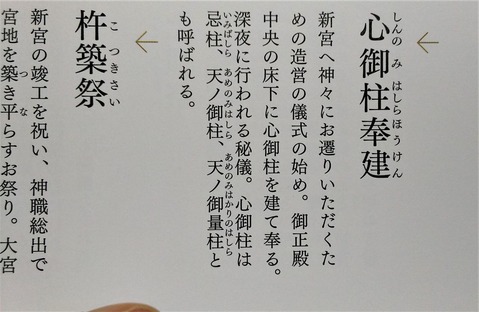 心御柱奉建
しんのみはしらほうけん
新宮へ神々にお遷りいただくた
めの造営の儀式の始め。御正殿
中央の床下に心御柱を建て奉る。
深夜に行われる秘儀。心御柱は
忌柱、天ノ御柱、天ノ御量柱と
いみばしら あめのみはしら あめのみはかりのはしら
も呼ばれる。
杵築祭
こつきさい
新宮の竣工を祝い、神職総出で
宮地を築き平らすお祭り。大宮
つ な